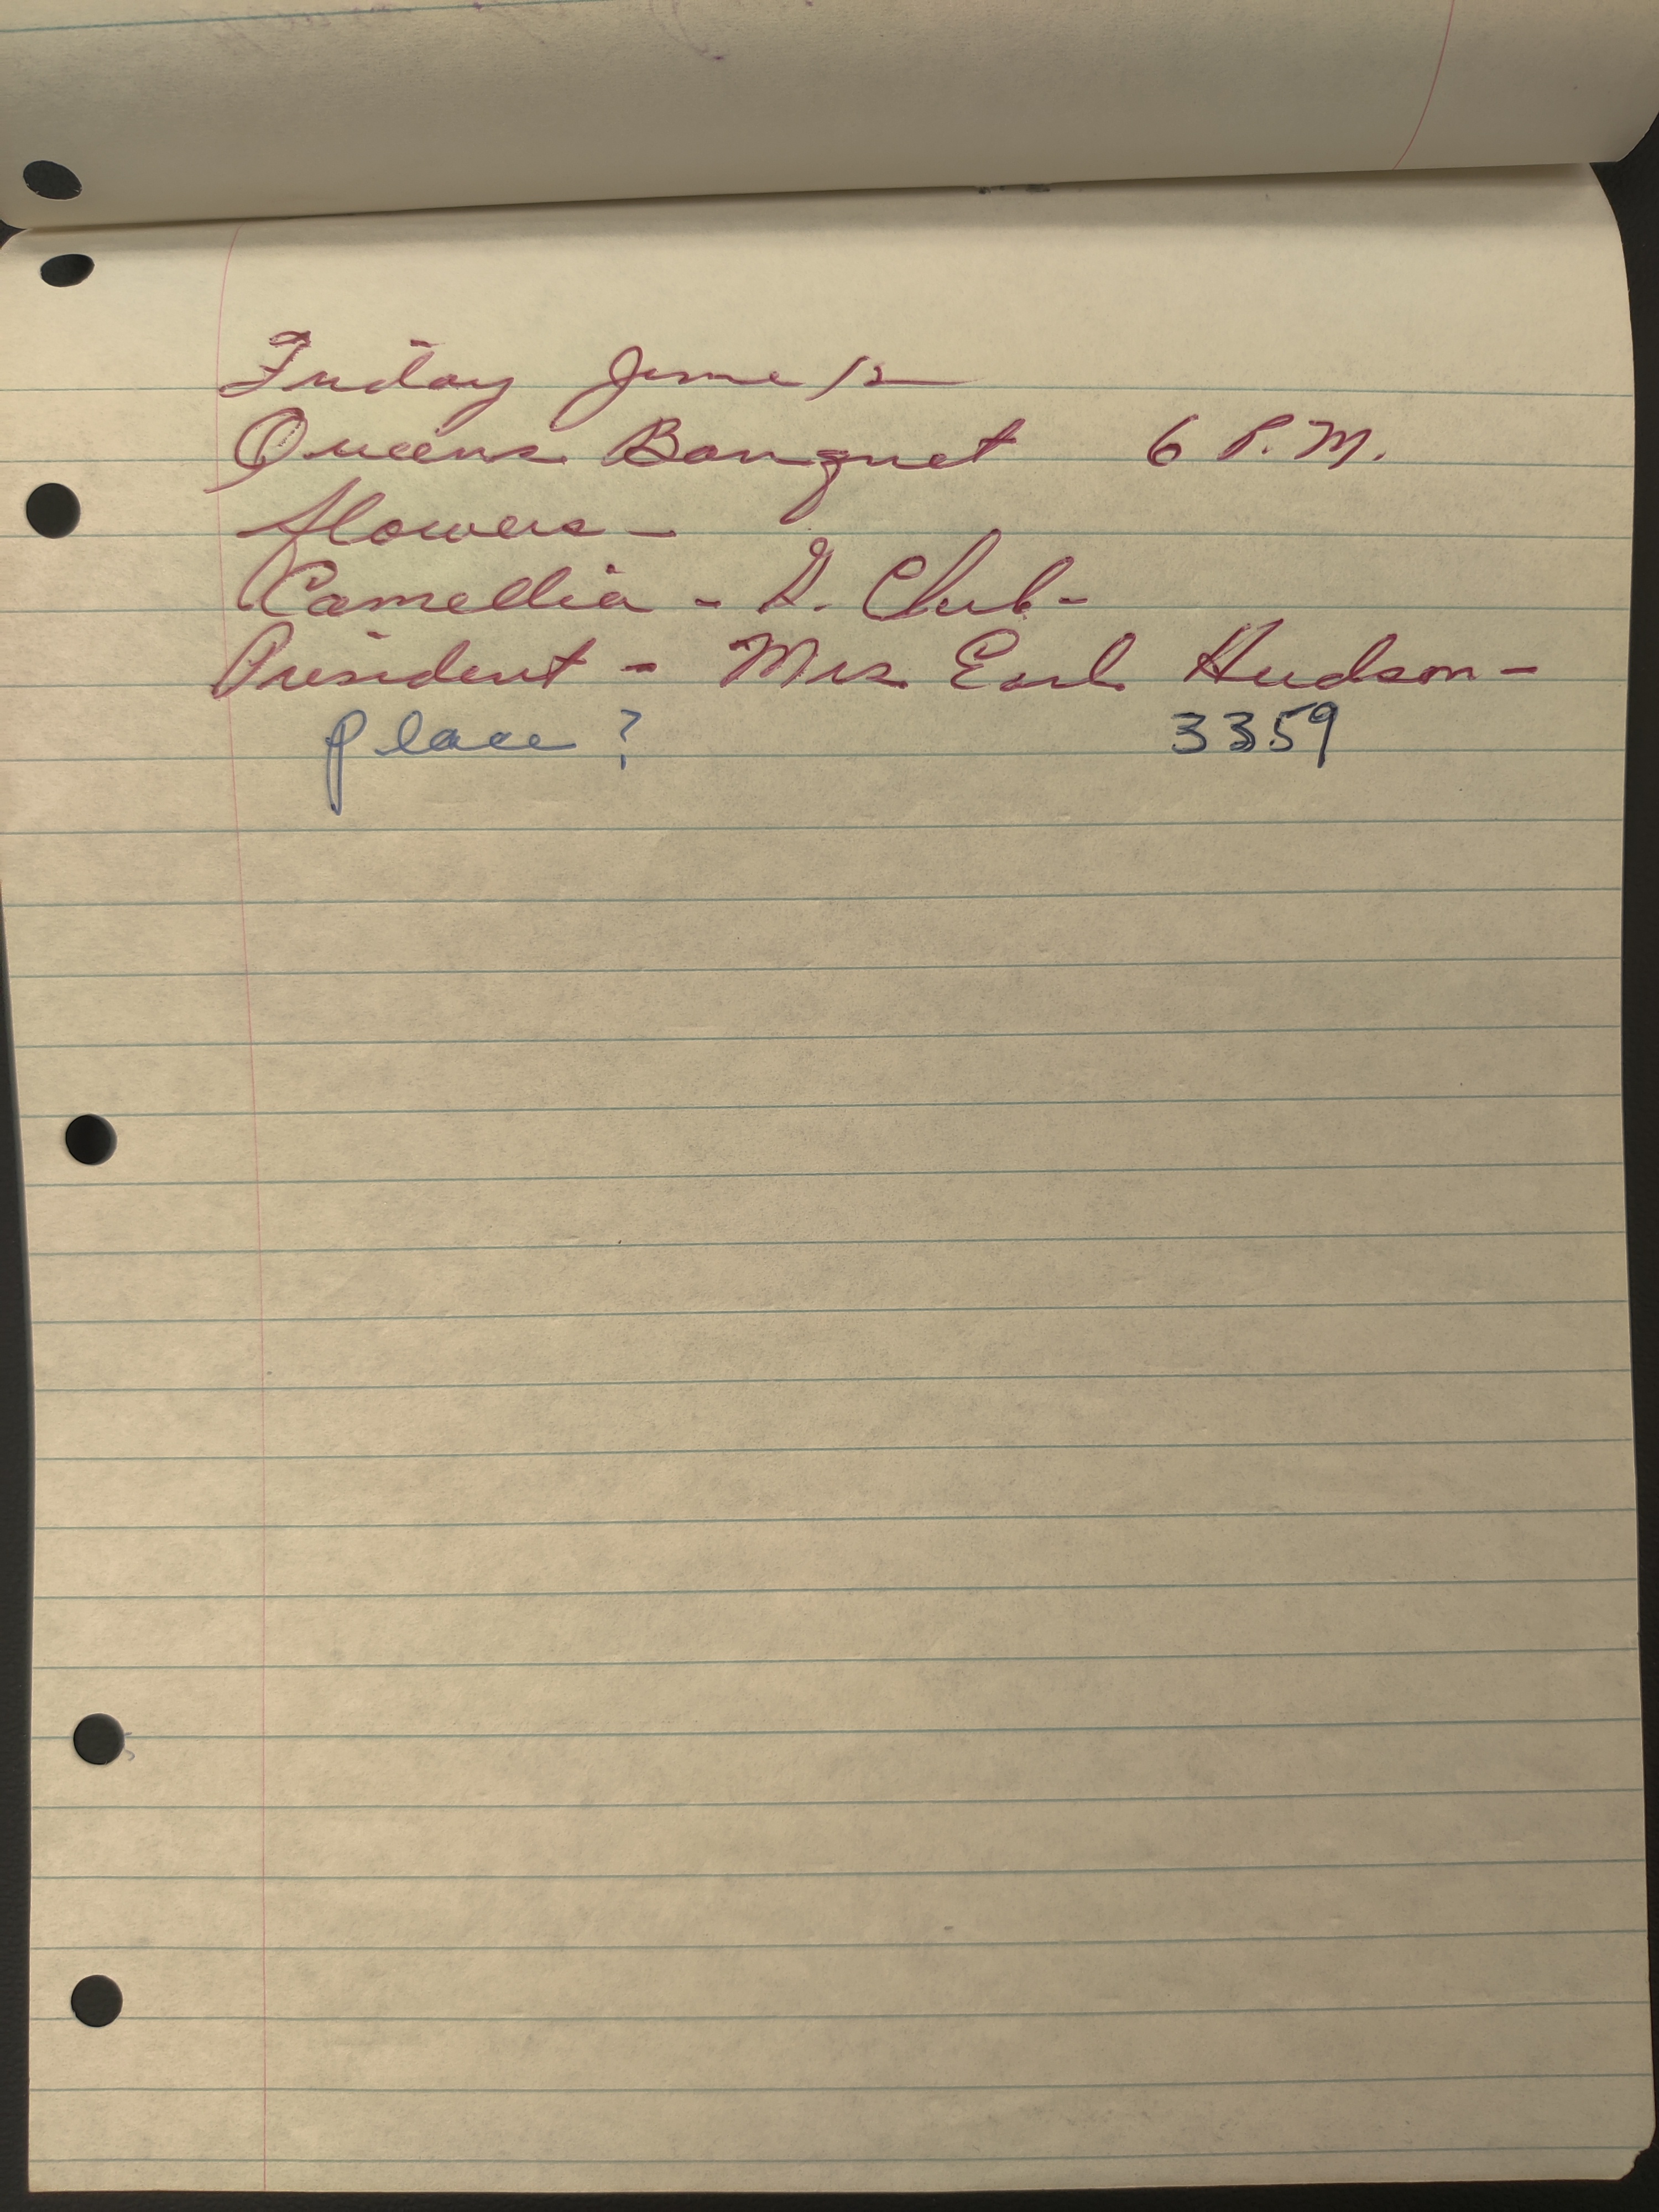 Friday June 12
Queens Banquet 6 P.M.
flowers -
Camellia - G. Club -
President - Mrs Earl Hudson -
place ? 3359